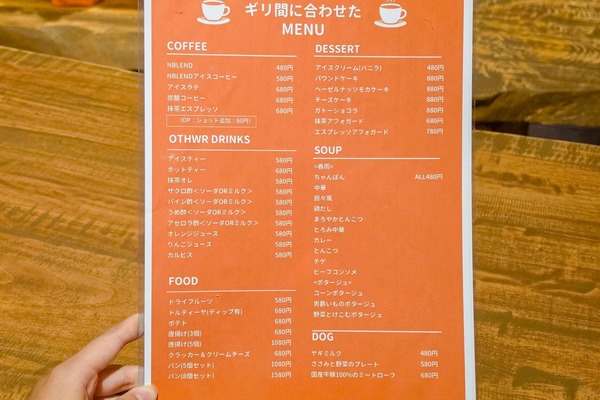 ギリ間に合わせた
MENU
COFFEE
NBLEND 480円
NBLENDアイスコーヒー 580円
アイスラテ 680円
炭酸コーヒー 680円
抹茶エスプレッソ 680円
(OP:ショット追加:80円)
OTHWR DRINKS
アイスティー 580円
ホットティー 680円
抹茶オレ 580円
ザクロ酢<ソーダORミルク> 580円
パイン酢<ソーダORミルク> 580円
うめ酢<ソーダORミルク> 580円
アセロラ酢<ソーダORミルク> 580円
オレンジジュース 580円
りんごジュース 580円
カルピス 580円
FOOD
ドライフルーツ 580円
トルティーヤ(ディップ有) 680円
ポテト 680円
唐揚げ(3個) 680円
唐揚げ(5個) 1080円
クラッカー&クリームチーズ 680円
パン(5個セット) 1080円
パン(8個セット) 1580円
DESSERT
アイスクリーム(バニラ) 480円
パウンドケーキ 880円
ヘーゼルナッツモカケーキ 880円
チーズケーキ 880円
ガトーショコラ 880円
抹茶アフォガード 680円
エスプレッソアフォガード 780円
SOUP
<春雨>
ちゃんぽん ALL480円
中華
担々風
鶏だし
まろやかとんこつ
とろみ中華
カレー
とんこつ
チゲ
ビーフコンソメ
<ポタージュ>
コーンポタージュ
男爵いものポタージュ
野菜とけこむポタージュ
DOG
ヤギミルク 480円
ささみと野菜のプレート 580円
国産牛豚100%のミートローフ 680円